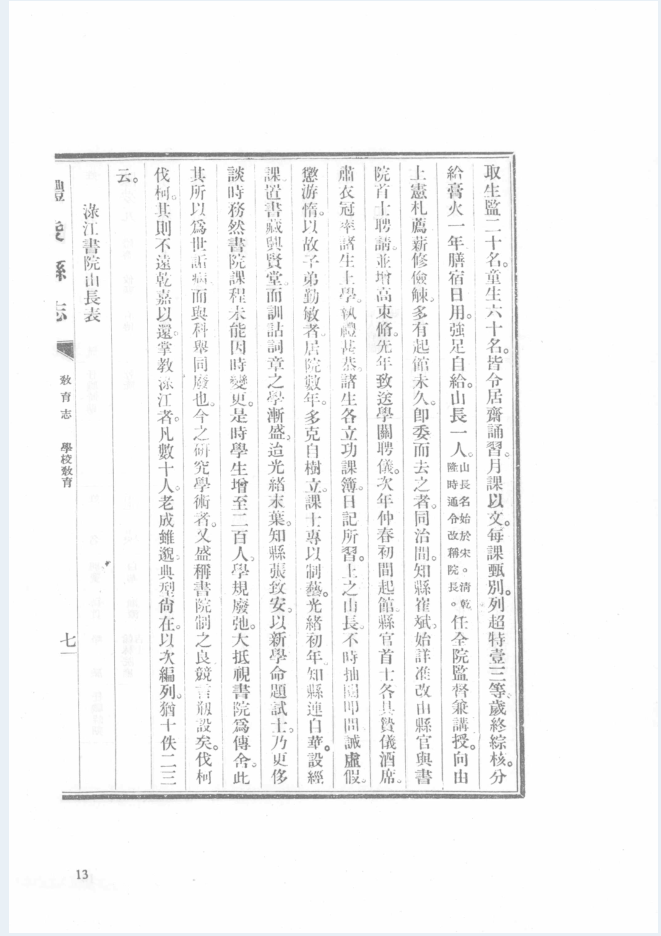 取生監二十名。童生六十名。皆令居齋誦習。月課以文。每課甄別。列超特壹三等。歲終綜核。分
給膏火一年膳宿日用。強足自給。山長一人。山長名始於宋。淸乾隆時通令改稱院長。任全院監督兼講授。向由
上憲札薦。薪修儉觫。多有起館未久。卽委而去之者。同治間。知縣崔斌。始詳准改由縣官與書
院首士聘請。並增高束脩。先年致送學關聘儀。次年仲春初間起館。縣官首士各具贄儀酒席。
肅衣冠率諸生上學。執禮甚恭。諸生各立功課簿。日記所習。上之山長。不時抽閱叩問。誡虛假。
懲游惰。以故子弟勤敏者。居院數年。多克自樹立。課士專以制藝。光緒初年。知縣連自華。設經
課。置書藏與賢堂。而訓詁詞章之學漸盛。迨光緒末葉。知縣張致安。以新學命題試士。乃更侈
談時務。然書院課程。未能因時變更。是時學生增至二百人。學規廢弛。大抵視書院爲傳舍。此
其所以爲世詬病而與科舉同廢也。今之研究學術者。又盛稱書院制之良。競言剏設矣。伐柯
伐柯。其則不遠。乾嘉以還。掌教淥江者。凡數十人。老成雖邈。典型尙在。以次編列。猶十佚二三
云。
淥江書院山長表
醴陵縣志
教育志 學校教育
七一
13